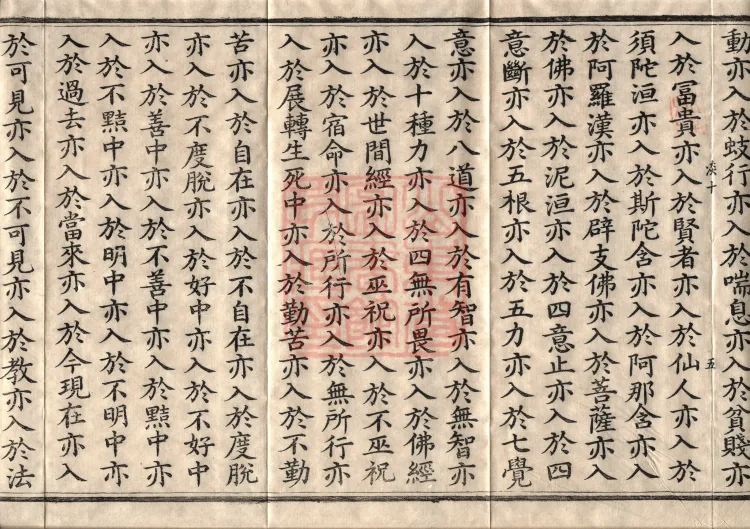 動亦入於蚑行亦入於喘息亦入於貧賤亦
入於冨貴亦入於賢者亦入於仙人亦入於
須陀洹亦入於斯陀含亦入於阿那含亦入
於阿羅漢亦入於辟支佛亦入於菩薩亦入
於佛亦入於泥洹亦入於四意止亦入於四
意斷亦入於五根亦入於五力亦入於七覺
意亦入於八道亦入於有智亦入於無智亦
入於十種力亦入於四無所畏亦入於佛經
亦入於世間經亦入於巫祝亦入於不巫祝
亦入於宿命亦入於所行亦入於無所行亦
入於展轉生死中亦入於勤苦亦入於不勤
苦亦入於自在亦入於不自在亦入於度脫
亦入於不度脫亦入於好中亦入於不好中
亦入於善中亦入於不善中亦入於黠中亦
入於不黠中亦入於明中亦入於不明中亦
入於過去亦入於當來亦入於今現在亦入
於可見亦入於不可見亦入於教亦入於法